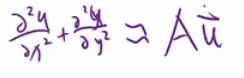 ∂²u/∂x² + ∂²u/∂y² ≈ Au⃗